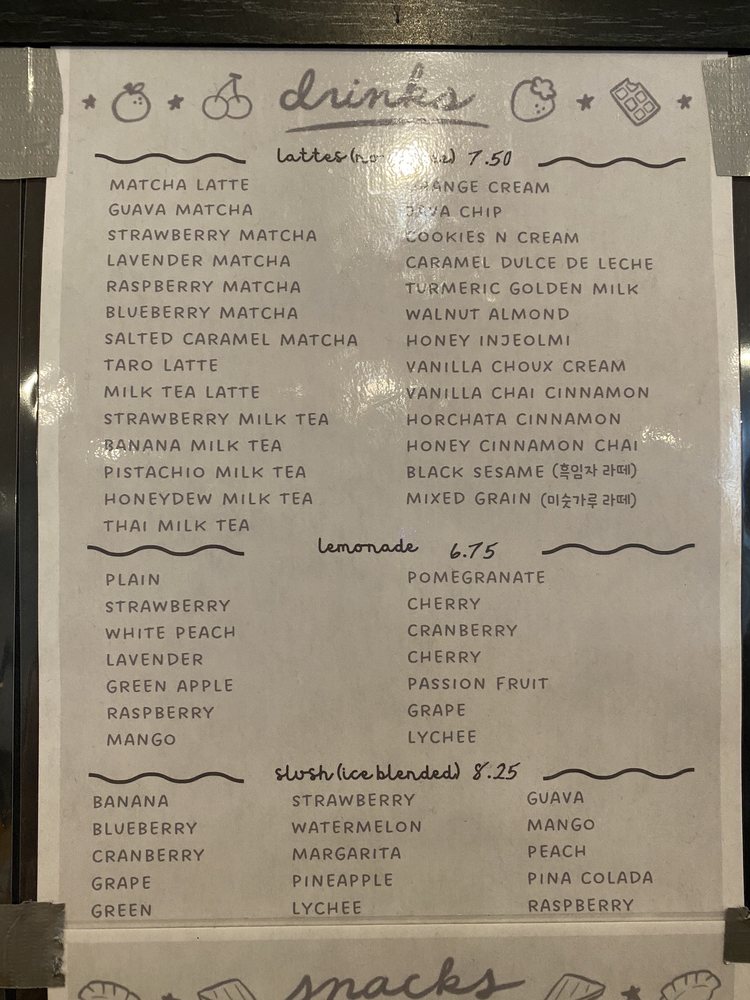 drinks
lattes 7.50
MATCHA LATTE
GUAVA MATCHA
STRAWBERRY MATCHA
LAVENDER MATCHA
RASPBERRY MATCHA
BLUEBERRY MATCHA
SALTED CARAMEL MATCHA
TARO LATTE
MILK TEA LATTE
STRAWBERRY MILK TEA
BANANA MILK TEA
PISTACHIO MILK TEA
HONEYDEW MILK TEA
THAI MILK TEA
ORANGE CREAM
JAVA CHIP
COOKIES N CREAM
CARAMEL DULCE DE LECHE
TURMERIC GOLDEN MILK
WALNUT ALMOND
HONEY INJEOLMI
VANILLA CHOUX CREAM
VANILLA CHAI CINNAMON
HORCHATA CINNAMON
HONEY CINNAMON CHAI
BLACK SESAME (흑임자 라떼)
MIXED GRAIN (미숫가루 라떼)
lemonade 6.75
PLAIN
STRAWBERRY
WHITE PEACH
LAVENDER
GREEN APPLE
RASPBERRY
MANGO
POMEGRANATE
CHERRY
CRANBERRY
CHERRY
PASSION FRUIT
GRAPE
LYCHEE
slush (ice blended) 8.25
BANANA
BLUEBERRY
CRANBERRY
GRAPE
GREEN
STRAWBERRY
WATERMELON
MARGARITA
PINEAPPLE
LYCHEE
GUAVA
MANGO
PEACH
PINA COLADA
RASPBERRY
snacks